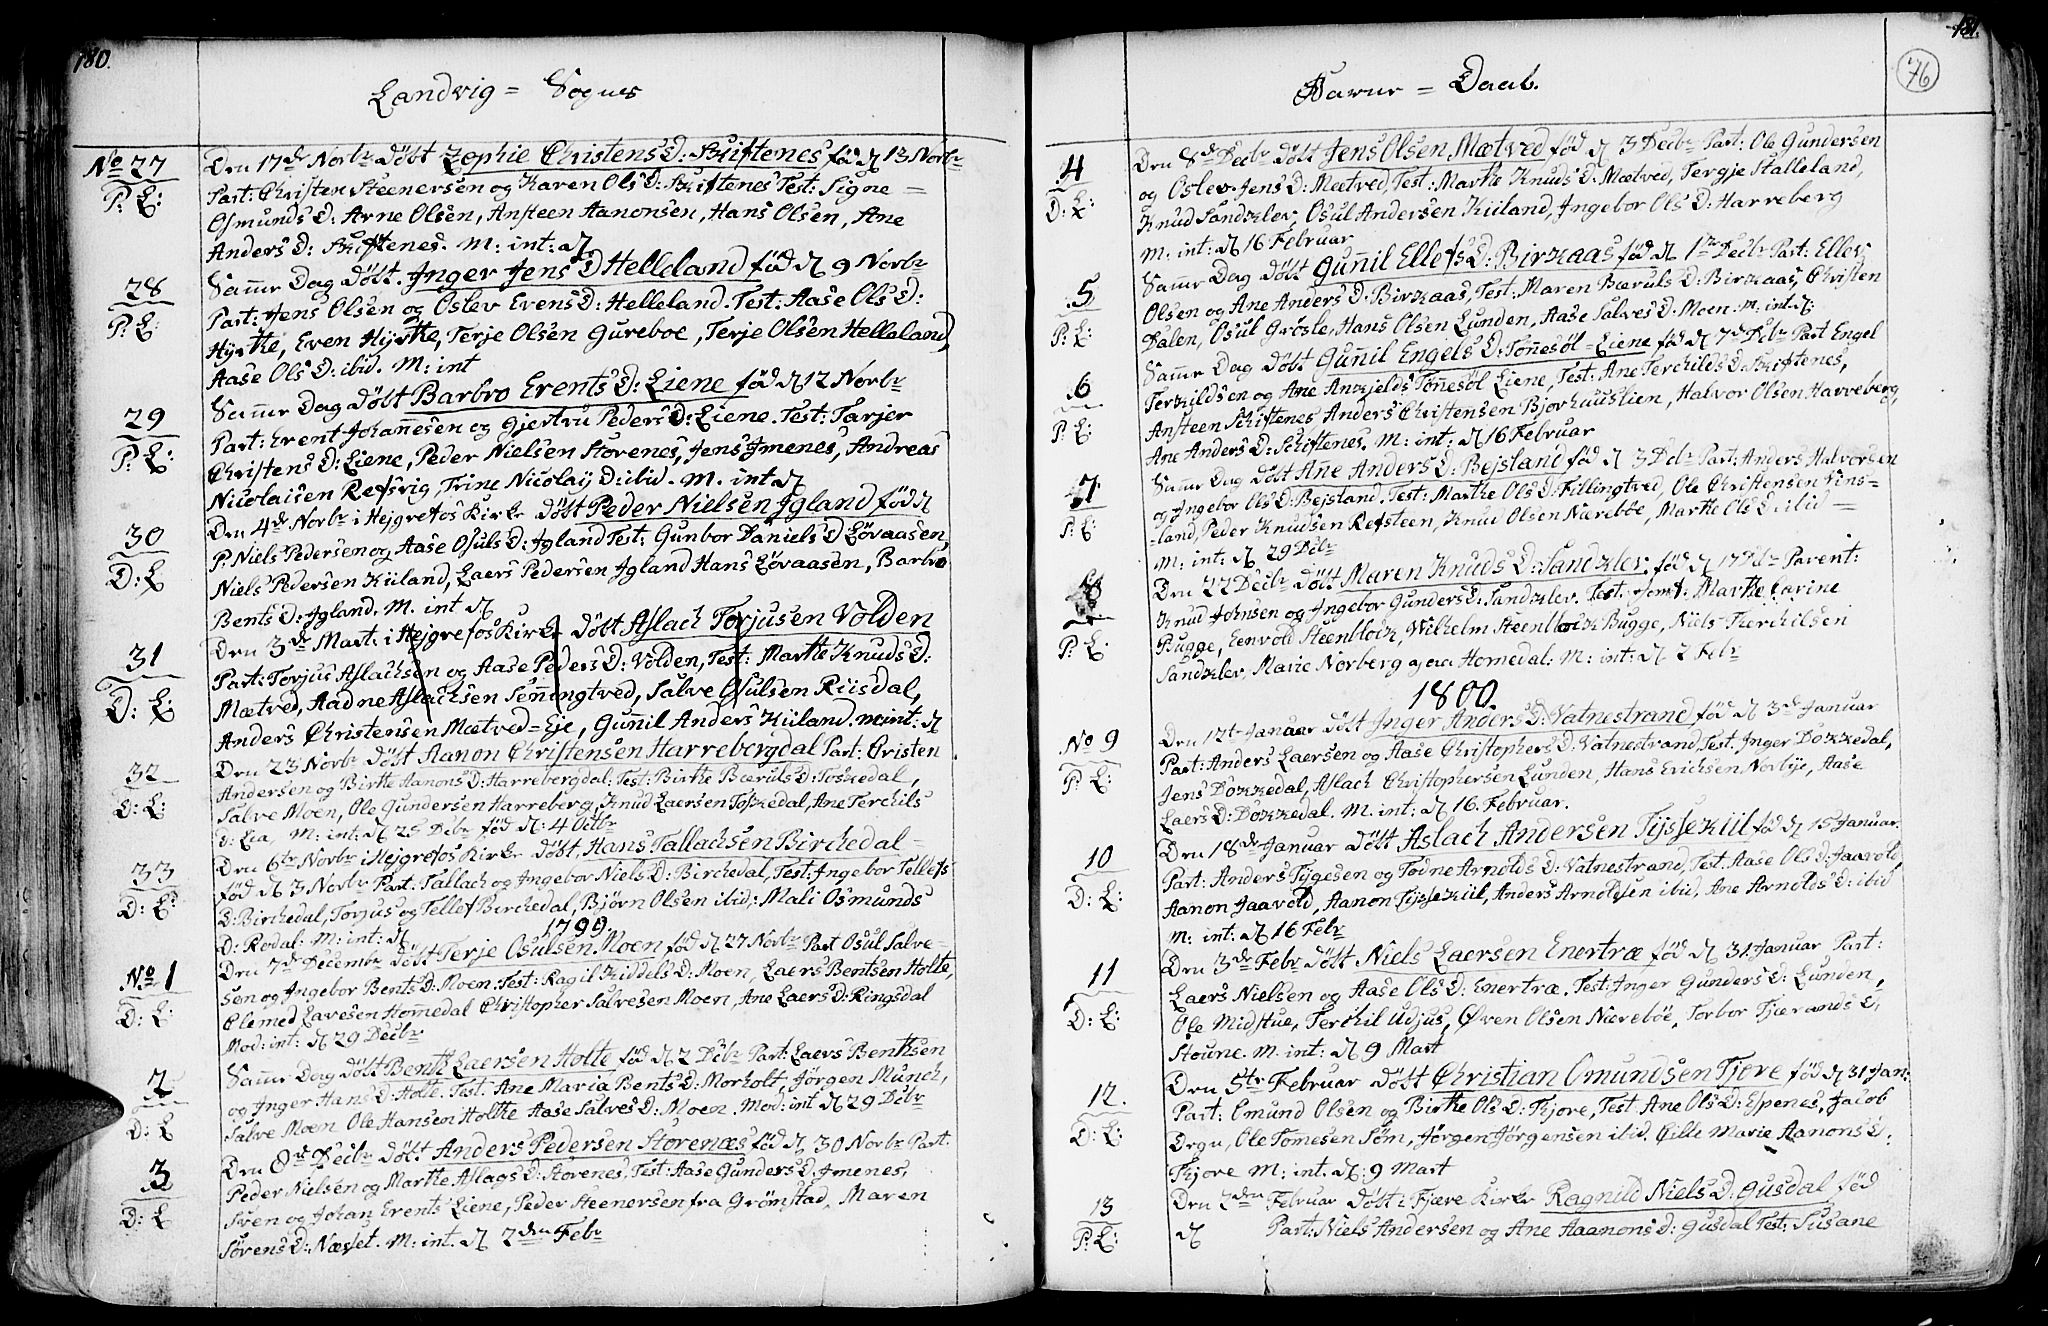 180.
Landvig = Sognes
No 27
P: E:
Den 17de Novbr døbt Zophie Christens D: Skiftenes fød d 13 Novbr
Part: Christen Steenersen og Karen Ols D: Skiftenes Test: Signe =
Osmunds D: Arne Olsen, Ansteen Aanonsen, Hans Olsen, Ane
Anders D: Skiftenes. M: int: d
28
P: E:
Samme Dag døbt. Inger Jens D Helleland fød d 9 Novbr
Part: Jens Olsen og Oslev Evens D: Helleland. Test: Aase Ols D:
Hyrtke, Even Hyrtke, Terje Olsen Gureboe, Terje Olsen Helleland,
Aase Ols D: ibid. M: int
29
P: E:
Samme Dag døbt Barbro Erents D: Liene fød d 12 Novbr
Part: Erent Johannesen og Gjertru Peders D: Liene. Test: Tarjer
Christens D: Liene, Peder Nielsen Storenes, Jens Imenes, Andreas
Nicolaisen Refsvig, Trine Nicolaij D: ibid. M. int d
30
D: E
Den 4de Novbr i Hejgrefos Kirke døbt Peder Nielsen Igland fød d
P: Niels Pedersen og Aase Osuls D: Igland Test: Gunbor Daniels D Løvaasen,
Niels Pedersen Kiiland, Laers Pedersen Igland Hans Løvaasen, Barbro
Bents D: Igland. M. int d
31
D: E:
Den 3de Mart. i Hejgrefos Kirke døbt Aslach Torjusen Volden
Part: Torjus Aslachsen og Aase Peders D: Volden, Test: Marthe Knuds D:
Mætved, Aadne Aslachsen Senningtved, Salve Osulsen Riisdal,
Anders Christensen Mætved = Eje, Gunnil Anders Kiiland. M int: d
32
D: E:
Den 23 Novbr døbt Aanon Christensen Harrebergdal Part: Cristen
Andersen og Birthe Aanons D: Harrebergdal: Test: Birthe Bæruls D: Toskedal,
Salve Moen, Ole Gundersen Harreberg, Knud Laersen Toskedal, Ane Terchils
D: Lia, M: int: d 25 Debr fød d: 4 Octbr
33
D: E:
Den 6te Novbr i Hejgrefos Kirke døbt, Hans Tallachsen Birchedal =
fød d 3 Novbr Part: Tallach og Ingebor Niels D: Birchedal, Test: Ingebor Tellefs
D: Birchedal, Torjus og Tellef Birchedal, Bjørn Olsen ibid,: Mali Osmunds
D: Rødal: M: int: d
1799.
No 1
D: E:
Den 7de Decembr døbt Terje Osulsen Moen fød d 27 Novbr Part Osul Salve=
sen og Ingebor Bents D: Moen. Test: Ragil Kiddels D: Moen, Laers Bentsen Holte,
Clemed Lavesen Homedal Christopher Salvesen Moen, Ane Laers D: Ringsdal
Mod: int: d 29 Decbr
2
D: E
Samme Dag døbt Benth Laersen Holte fød d 2 Decbr Part: Laers Benthsen
og Inger Hans D: Holte. Test. Ane Maria Bents D: Morholt, Jørgen Munch,
Salve Moen Ole Hansen Holthe Aase Salves D: Moen. Mod: int d 29 Decbr
3
D: E
Den 8de Decbr døbt Anders Pedersen Storenæs fød d, 30 Novbr Part:
Peder Nielsen og Marthe Aslags D: Storenes, Test: Aase Gunders D: Imenes,
Sven og Johan Erents Liene, Peder Steenersen fra Grømstad, Maren
Sørens D: Næsset. M: int. d 2den Febr
181.
76
Barne = Daab.
4
D: E:
Den 8de Decbr døbt Jens Olsen Mætved fød d 3 Decbr Part: Ole Gundersen
og Oslev Jens D: Mætved, Test: Marthe Knuds D: Mætved, Tergje Stalleland,
Knud Sandklev, Osul Andersen Kiiland, Ingebor Ols D: Harreberg
M. int: d 16 Februar
5
P: E:
Samme Dag døbt Gunnil Ellefs D: Birkaas fød d 1te Decbr Part: Ellev
Olsen og Ane Anders D: Birkaas, Test: Maren Bæruls D: Birkaas, Christen
Dalen, Osul Grøsle, Hans Olsen Lunden, Aase Salves D: Moen. M: int: d:
6
P: E:
Samme Dag døbt Gunnil Engels D: Tønnesøl = Eiene fød d 7de Decbr Part Engel
Terkildsen og Ane Ankjelds Tønnesøl Eiene, Test: Ane Terchilds D: Skiftenes,
Ansteen Schiftenes Anders Christensen Bjorhuustien, Halvor Olsen Harreberg,
Ane Anders D: Schiftenes. M: int: d 16 Februar
7
P: E:
Samme Dag døbt Ane Anders D: Bejsland fød d 3 Debr Part: Anders Halvorsen
og Ingebor Ols D: Bejsland. Test: Marthe Ols D: Fillingtved, Ole Christensen Vins=
=land, Peder Knudsen Refsteen, Knud Olsen Nærebøe, Marthe Ols D: ibid =
M: int: d 29 Decbr
8
P: E:
Den 22 Decbr døbt Maren Knuds D: Sandklev fød d 17 Debr Parent:
Knud Johnsen og Ingebor Gunders D: Sandklev. Test: Jomf: Marthe Carine
Bugge, Eenvold Steenblock, Wilhelm Steenblock Bugge, Niels Therchilsen
Sandklev, Marie Norberg Homedal: M: int: d 2 Febr
1800.
No 9
P: E:
Den 12te Januar døbt Inger Anders D: Vatnestrand fød d 3de Januar
Part: Anders Laersen og Aase Christophers D: Vatnestrand, Test. Inger Dokkedal,
Jens Dokkedal, Aslach Christophersen Lunden, Hans Erichsen Norbye, Aase
Laers D: Dokkedal. M. int: d 16. Februar.
10
D: E:
Den 18de Januar døbt Aslach Andersen Tijssekiil fød d 15 Januar.
Part: Anders Tygesen og Todne Arnolds D: Vatnestrand, Test. Aase Ols D: Jaavold,
Aanon Jaavold, Aanon Tijssekiil, Anders Arnoldsen ibid, Ane Arnolds D: ibid
M: int: d 16 Febr
11
D: E:
Den 3de Febr døbt Niels Laersen Enertræ fød d 31 Januar Part:
Laers Nielsen og Aase Ols D: Enertræ. Test: Inger Gunders D: Lunden,
Ole Midstue, Terchil Udjus, Øven Olsen Nærebøe, Torbor Tjærands D:
Stoune. M. int: d 9 Mart
12.
D: E:
Den 5te Februar døbt Christian Omundsen Fjøre fød d 31 Jan:
Part: Omund Olsen og Birthe Ols D: Fjore, Test: Ane Ols D: Espenes, Jacob
Ørgu, Ole Tommesen Søm, Jørgen Jørgensen ibid. Cille Marie Aanons D:
Fjore M: int: d: 9 Mart
13
P: E:
Den 2den Februar døbt i Fjære Kirke Ragnild Niels D: Gusdal fød
d Part: Niels Andersen og Ane Aaanons D: Gusdal Test: Susane